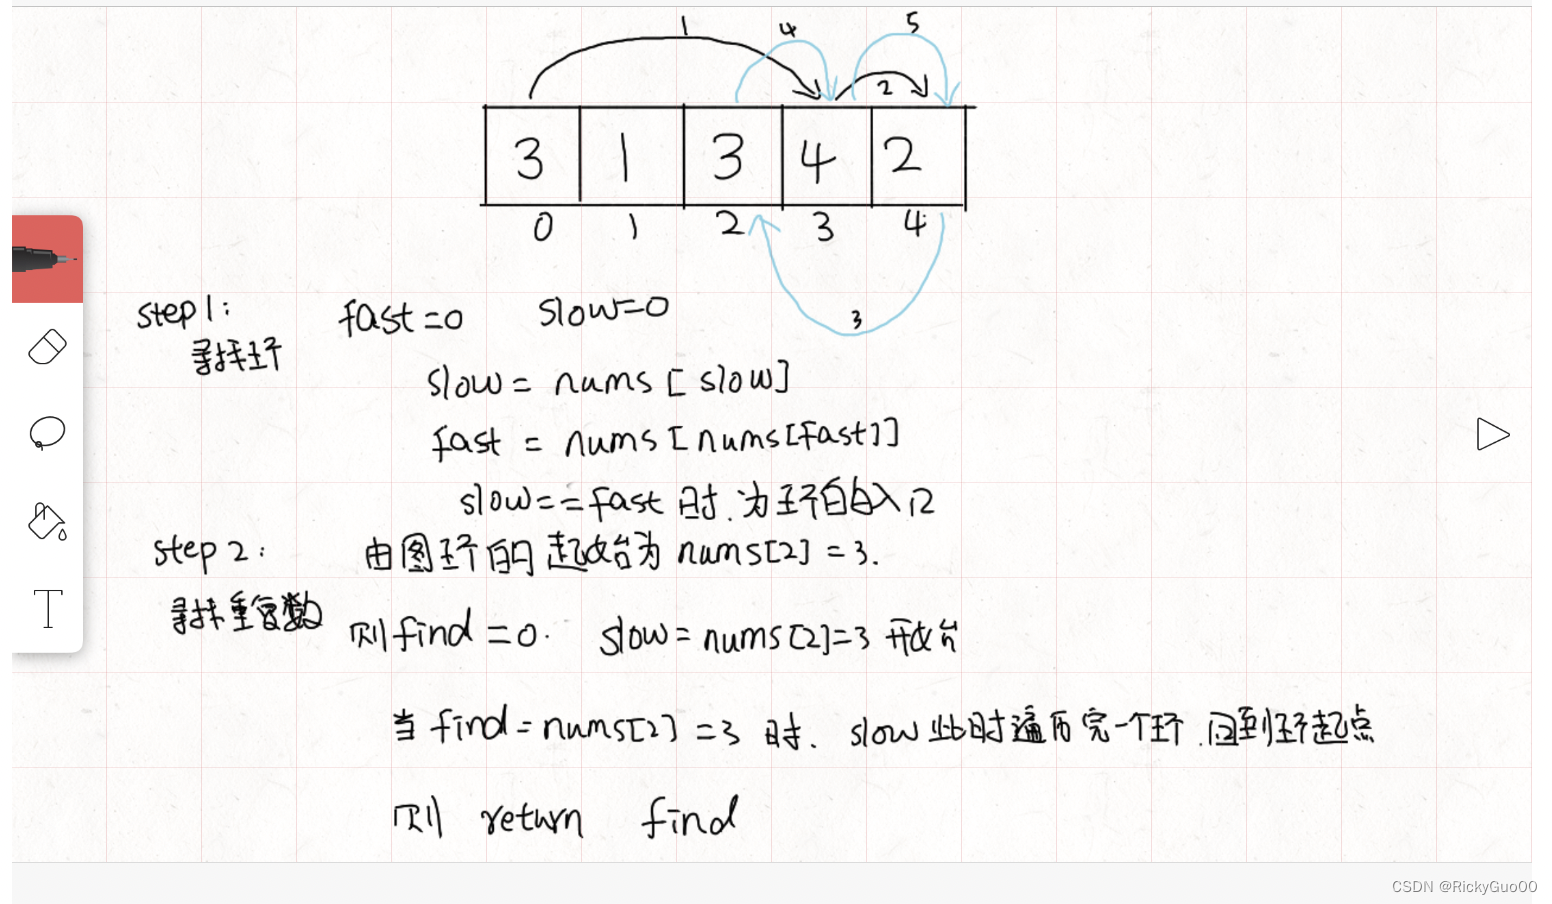 1 4 5
2
3 1 3 4 2
0 1 2 3 4
3
step1: fast=0 slow=0
寻找环
slow = nums [ slow]
fast = nums [ nums[fast]]
slow==fast 时.为环的入口
step 2: 由图环的起始为 nums[2] =3.
寻找重复数
则find =0. slow=nums[2]=3 开始
当 find=nums[2] =3 时. slow 此时遍历完一个环.回到环起点
则 return find
T
CSDN @RickyGuo00